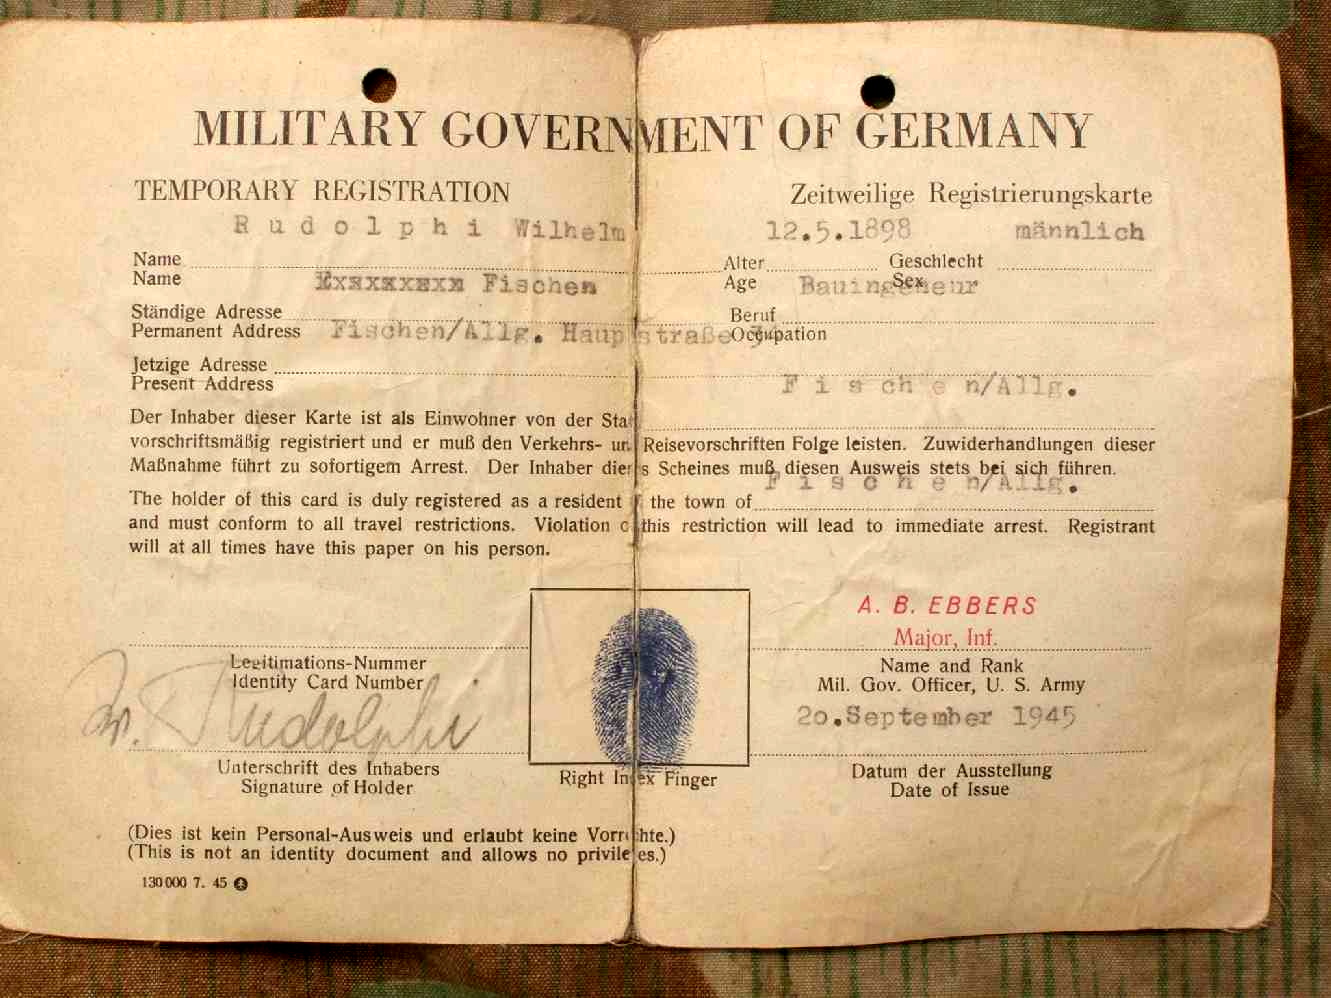 MILITARY GOVERNMENT OF GERMANY
TEMPORARY REGISTRATION Zeitweilige Registrierungskarte
Rudolphi Wilhelm 12.5.1898 männlich
Name Alter Geschlecht
Name Age Sex
Exxxxxxxx Fischen Bauingeneur
Ständige Adresse Beruf
Permanent Address Occupation
Fischen/Allg. Hauptstraße
Jetzige Adresse
Present Address
Fischen/Allg.
Der Inhaber dieser Karte ist als Einwohner von der Sta
vorschriftsmäßig registriert und er muß den Verkehrs- un Reisevorschriften Folge leisten. Zuwiderhandlungen dieser
Maßnahme führt zu sofortigem Arrest. Der Inhaber dieses Scheines muß diesen Ausweis stets bei sich führen.
Fischen/Allg.
The holder of this card is duly registered as a resident the town of
and must conform to all travel restrictions. Violation o this restriction will lead to immediate arrest. Registrant
will at all times have this paper on his person.
A. B. EBBERS
Major, Inf.
Legitimations-Nummer Name and Rank
Identity Card Number Mil. Gov. Officer, U. S. Army
W. Rudolphi 20.September 1945
Unterschrift des Inhabers Right Index Finger Datum der Ausstellung
Signature of Holder Date of Issue
(Dies ist kein Personal-Ausweis und erlaubt keine Vorrechte.)
(This is not an identity document and allows no privileges.)
130000 7. 45